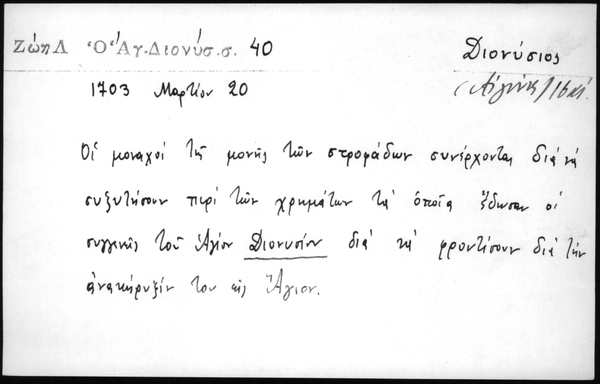 Ζώη Λ Ὁ Ἅγ. Διονύσ. σ. 40
Διονύσιος
(Αἰγίνης)
1703 Μαρτίου 20
Οἱ μοναχοί τῆς μονῆς τῶν στροφάδων συνέρχονται διά νά
συζητήσουν περί τῶν χρημάτων τά ὁποῖα ἔδωσαν οἱ
συγγενῆς τοῦ Ἁγίου Διονυσίου διά νά φροντίσουν διά τήν
ἀνακήρυξίν του εἰς Ἅγιον.